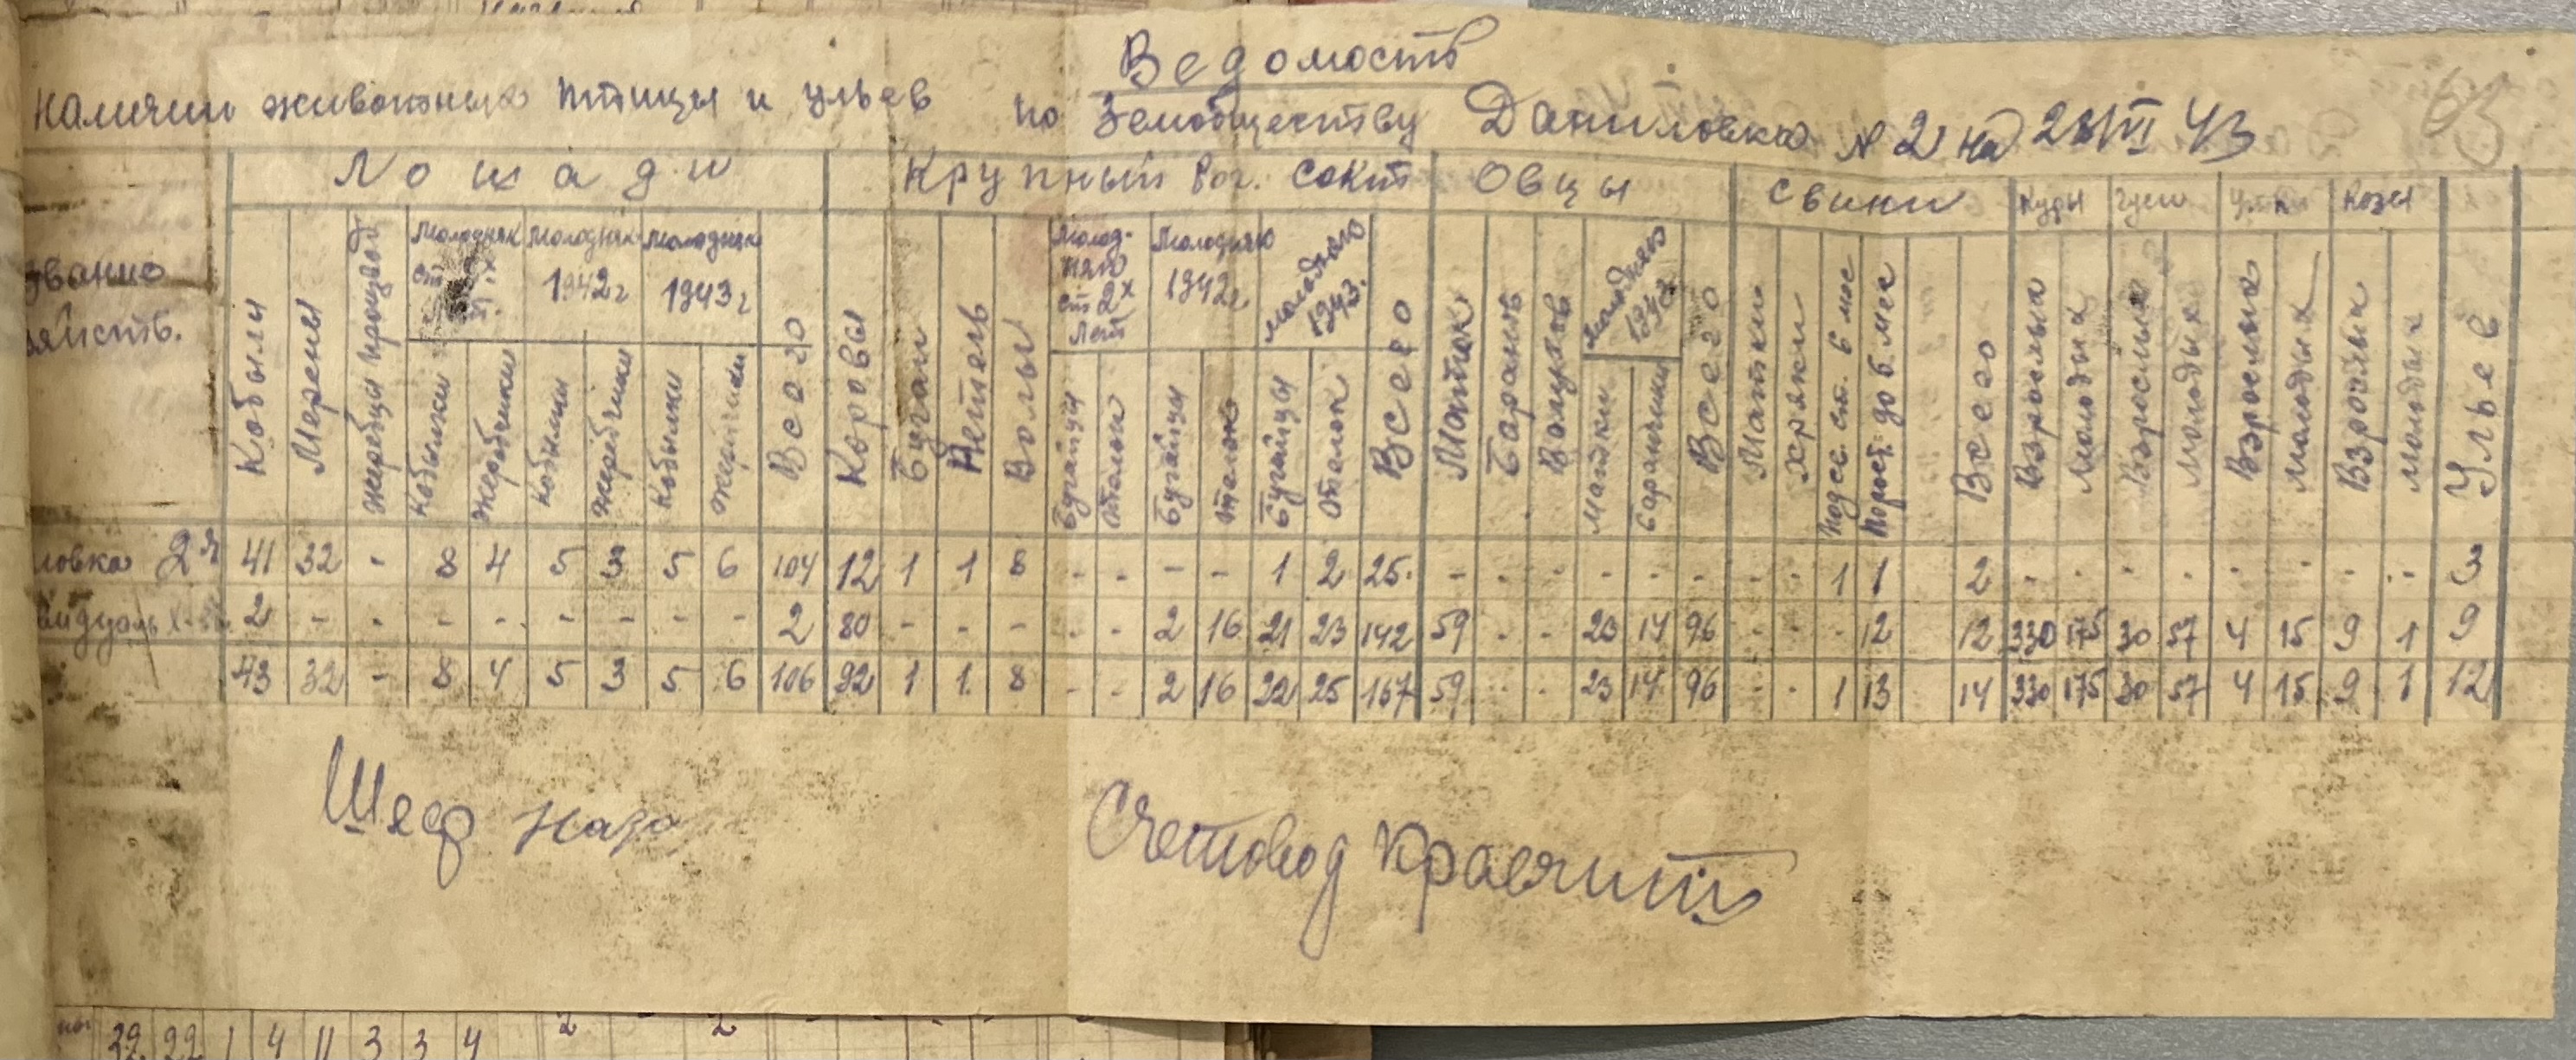 Ведомость
наличии животных птицы и ульев по Земобществу Даниловка № 2 на 28/VI 43
63
Лошади Крупный рог. скот Овцы Свиньи Куры Гуси Утки Козы
Кобылы Мерены Жеребцы производ. Молодняк ст. 2х лет. Молодняк 1942 г Молодняк 1943 г Всего Коровы Бугаи Нетель Волы Молодняк ст 2х лет Молодняк 1942 г. Молодняк 1943. Всего Маток Баранов Валухов Молодняк 1943 Всего Матки Хряки Подсв. ст. 6 мес Порост. до 6. мес Всего Взрослых Молодых Взрослых Молодых Взрослых Молодых Взрослых Молодых Ульев
Кобылки Жеребчики Кобылки Жеребчики Кобылки Жеребчики Бугайцы телок Бугайцы телок Бугайцы телок Матки Баранчики
звание
зяйств.
ловка 2я 41 32 - 8 4 5 3 5 6 104 12 1 1 8 - - - - 1 2 25. - - - - - - - - 1 1 2 - - - - - - - - 3
видуаль х- 2 - - - - - - - - 2 80 - - - - - 2 16 21 23 142 59 - - 23 14 96 - - - 12 12 330 175 30 57 4 15 9 1 9
43 32 - 8 4 5 3 5 6 106 92 1 1. 8 - - 2 16 22 25 167 59 - - 23 14 96 - - 1 13 14 330 175 30 57 4 15 9 1 12
Шеф
Счетовод
39 22 1 4 11 3 3 4 2 - 2